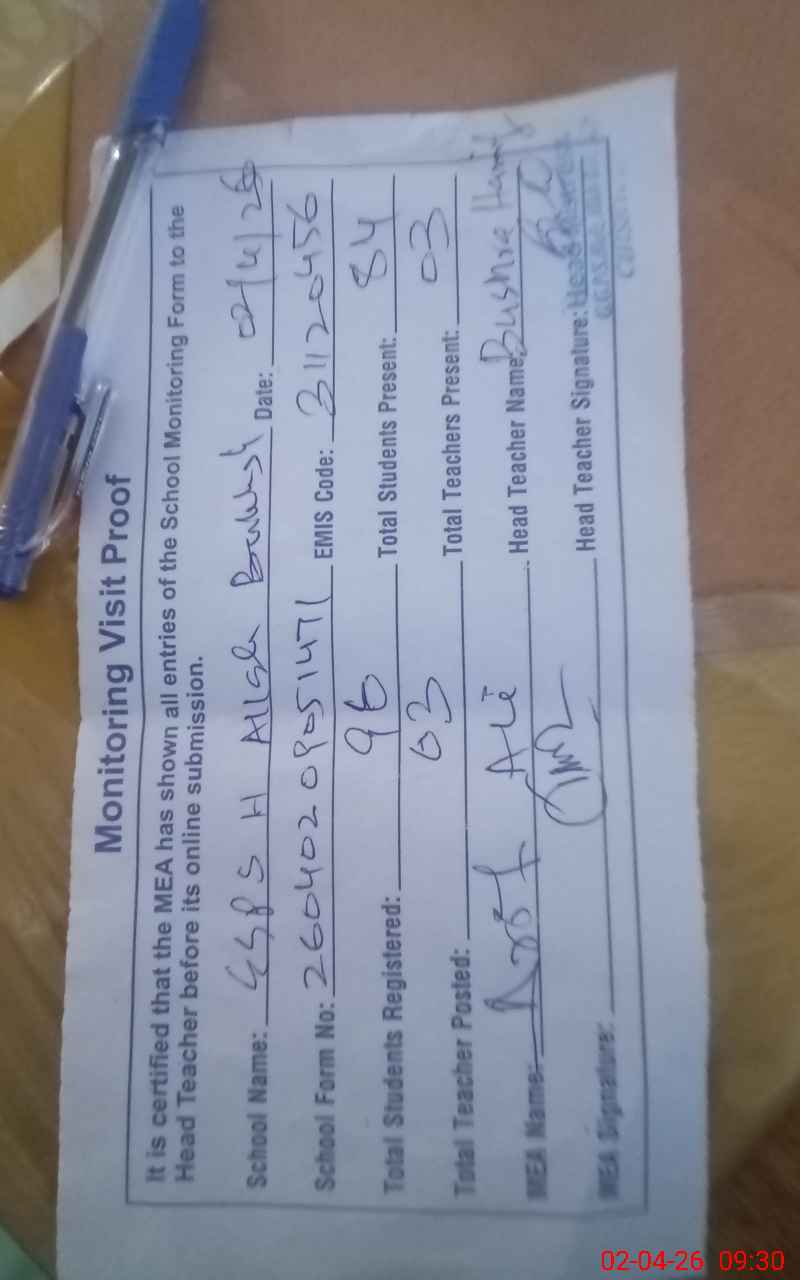 Monitoring Visit Proof
It is certified that the MEA has shown all entries of the School Monitoring Form to the
Head Teacher before its online submission.
School Name: GGPS H Allah Bakhsh Date: 02/4/26
School Form No: 26040209051471 EMIS Code: 31120456
Total Students Registered: 96 Total Students Present: 84
Total Teacher Posted: 03 Total Teachers Present: 03
MEA Name: Ali Head Teacher Name: Bushra Hamid
MEA Signature: Head Teacher Signature:
02-04-26 09:30